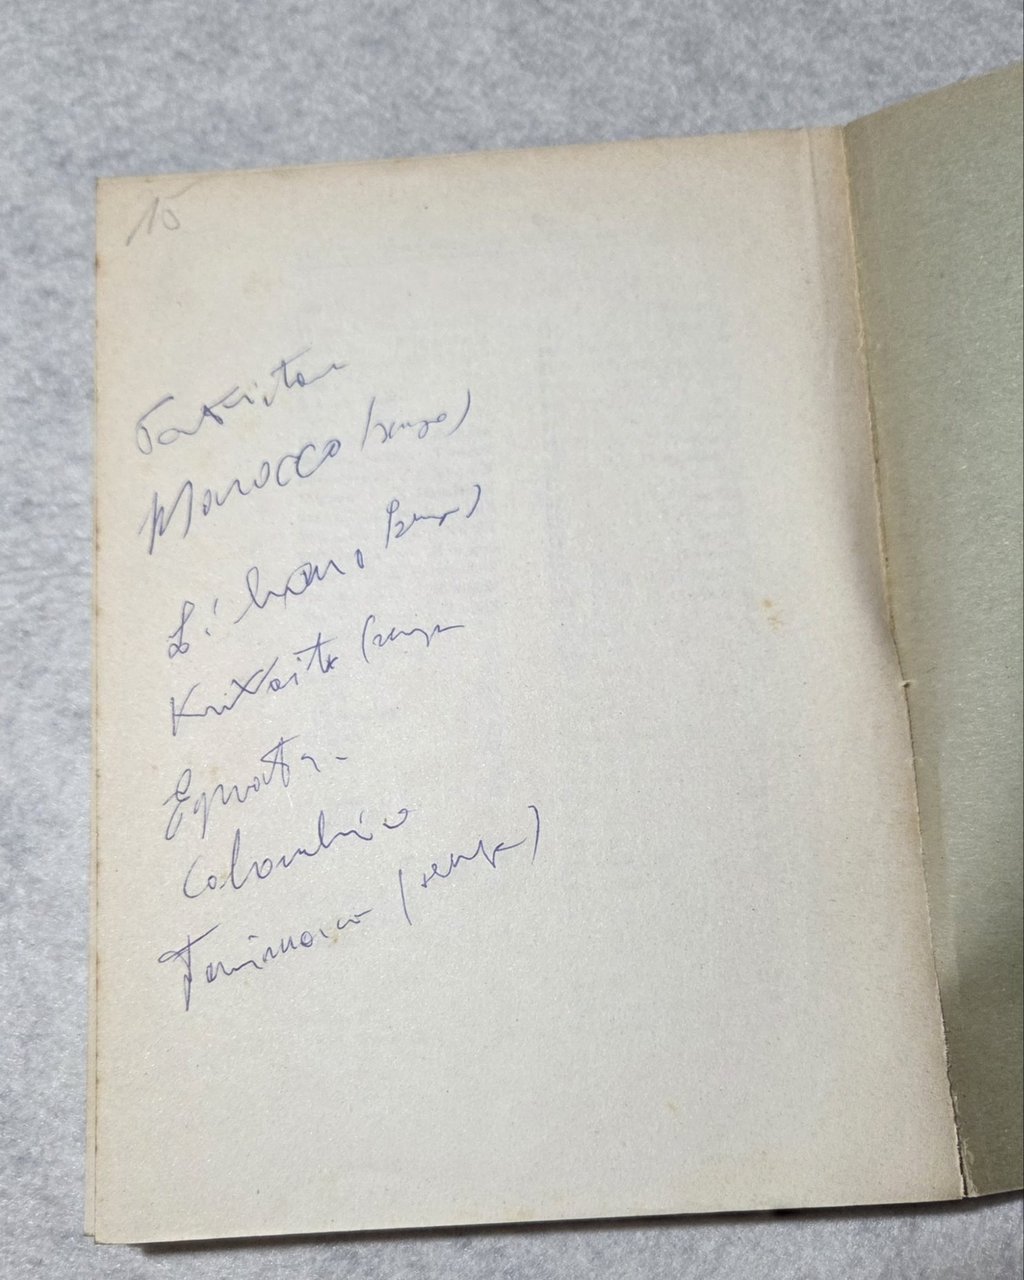 15
Pakistan
Marocco (senza)
Libano (senza)
Kuwait (senza
Equator
Colombia
(senza)